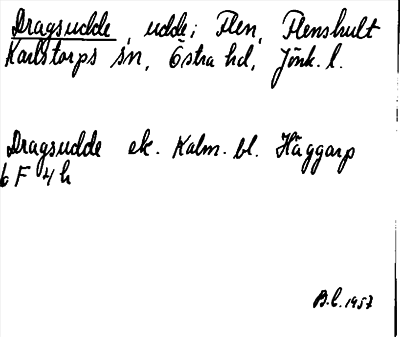 Dragsudde, udde; Flen, Flenshult
Karlstorps sn, Östra hd, Jönk. l.
Dragsudde ek. Kalm. bl. Häggarp
6 F 4 h
B.L. 1957